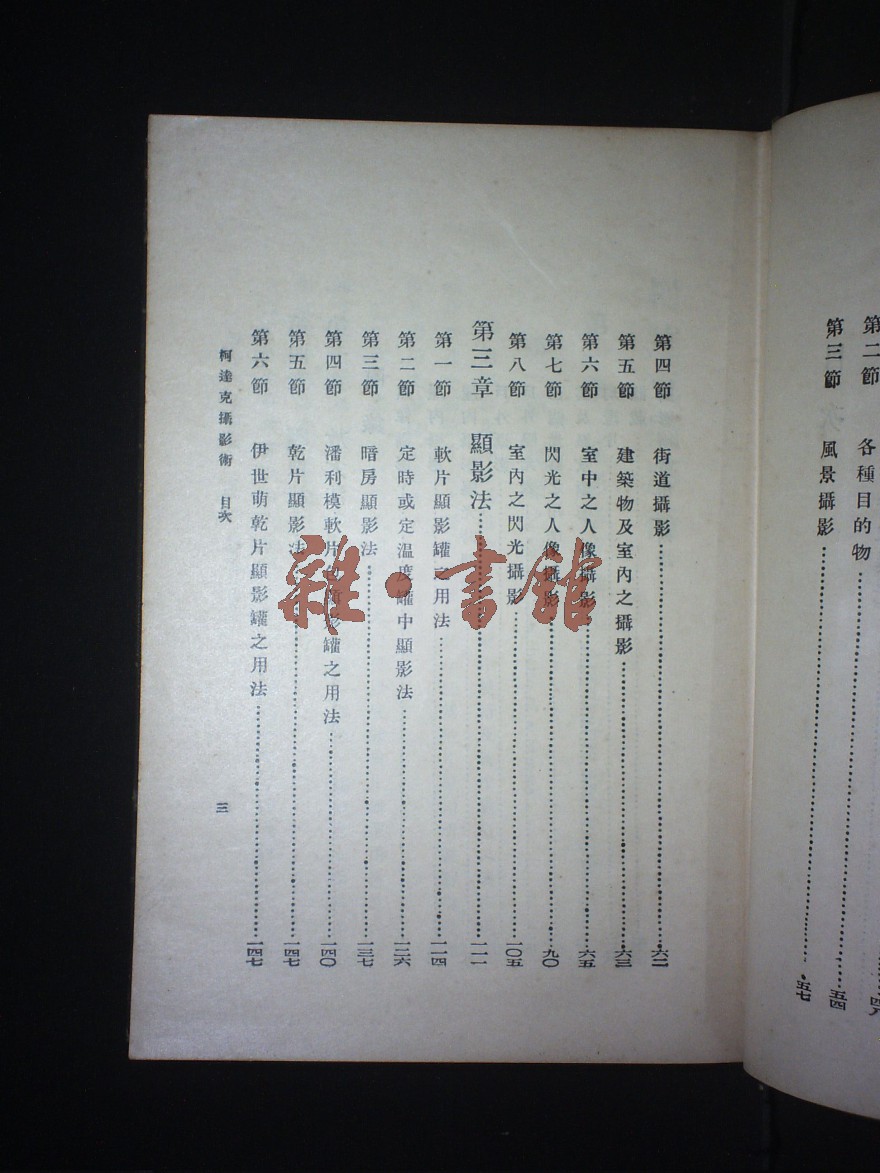 四八
第二節 各種目的物……五四
第三節 風景攝影……五七
第四節 街道攝影……六二
第五節 建築物及室內之攝影……六三
第六節 室中之人像攝影……六五
第七節 閃光之人像攝影……九〇
第八節 室內之閃光攝影……一〇五
第三章 顯影法……一一一
第一節 軟片顯影罐之用法……一一四
第二節 定時或定溫度罐中顯影法……一二六
第三節 暗房顯影法……一三七
第四節 潘利模軟片包顯影罐之用法……一四〇
第五節 乾片顯影法……一四七
第六節 伊世萌乾片顯影罐之用法……一四七
柯達克攝影術 目次 三
雜·書館